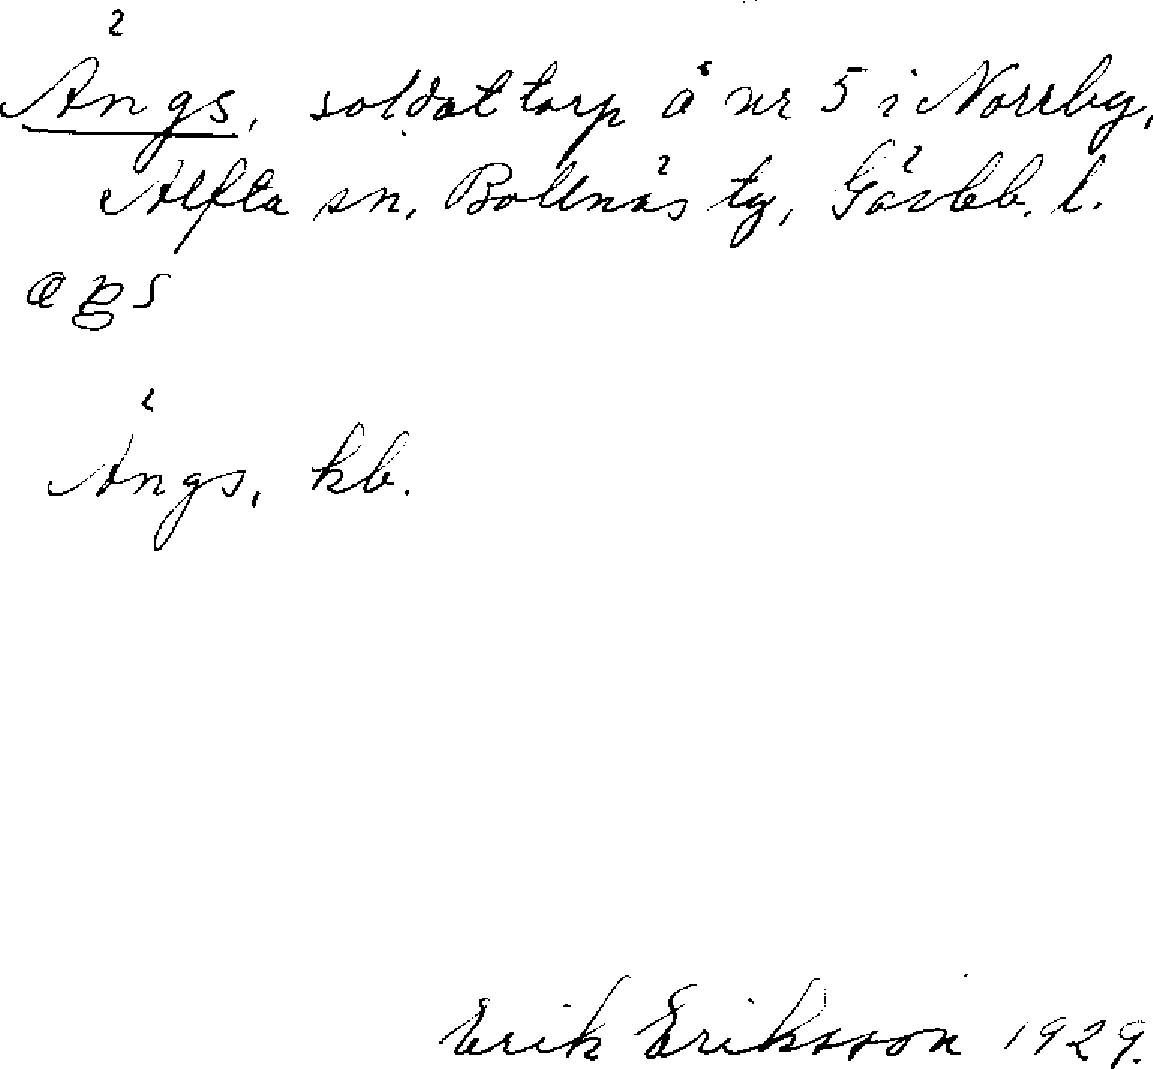 Ängs, soldattorp å nr 5 i Norrby,
Alfta sn, Bollnäs tg, Gävleb. l.
Ängs, kb.
Erik Eriksson 1929.